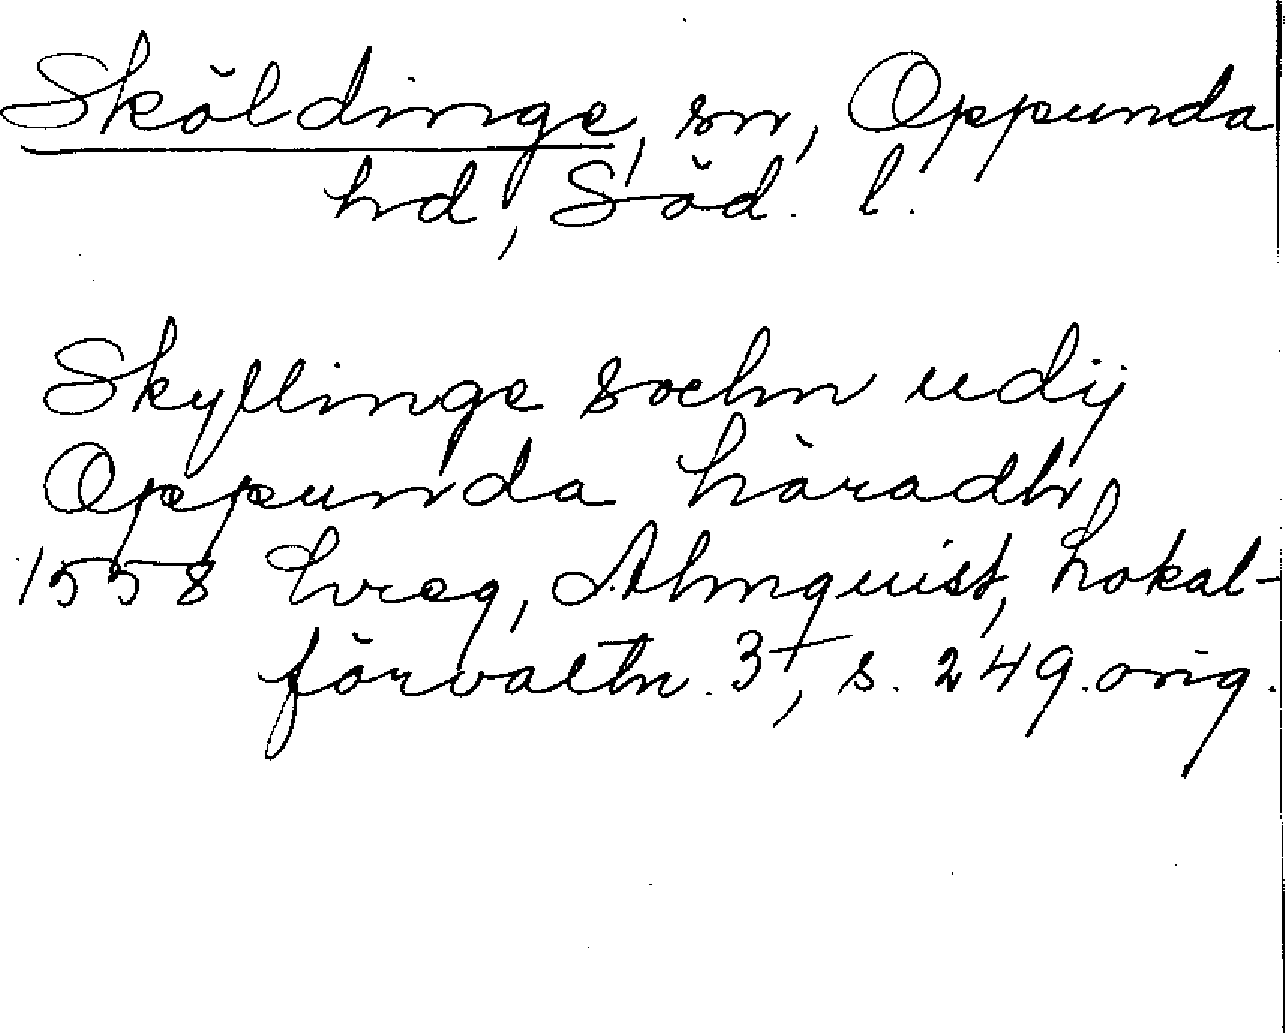 Sköldinge, sn, Oppunda
hd, Söd. l.
Skyllinge sochn udij
Oppunda häradh,
1558 hreg, Almquist, Lokal-
förvaltn. 3, s. 249. orig.